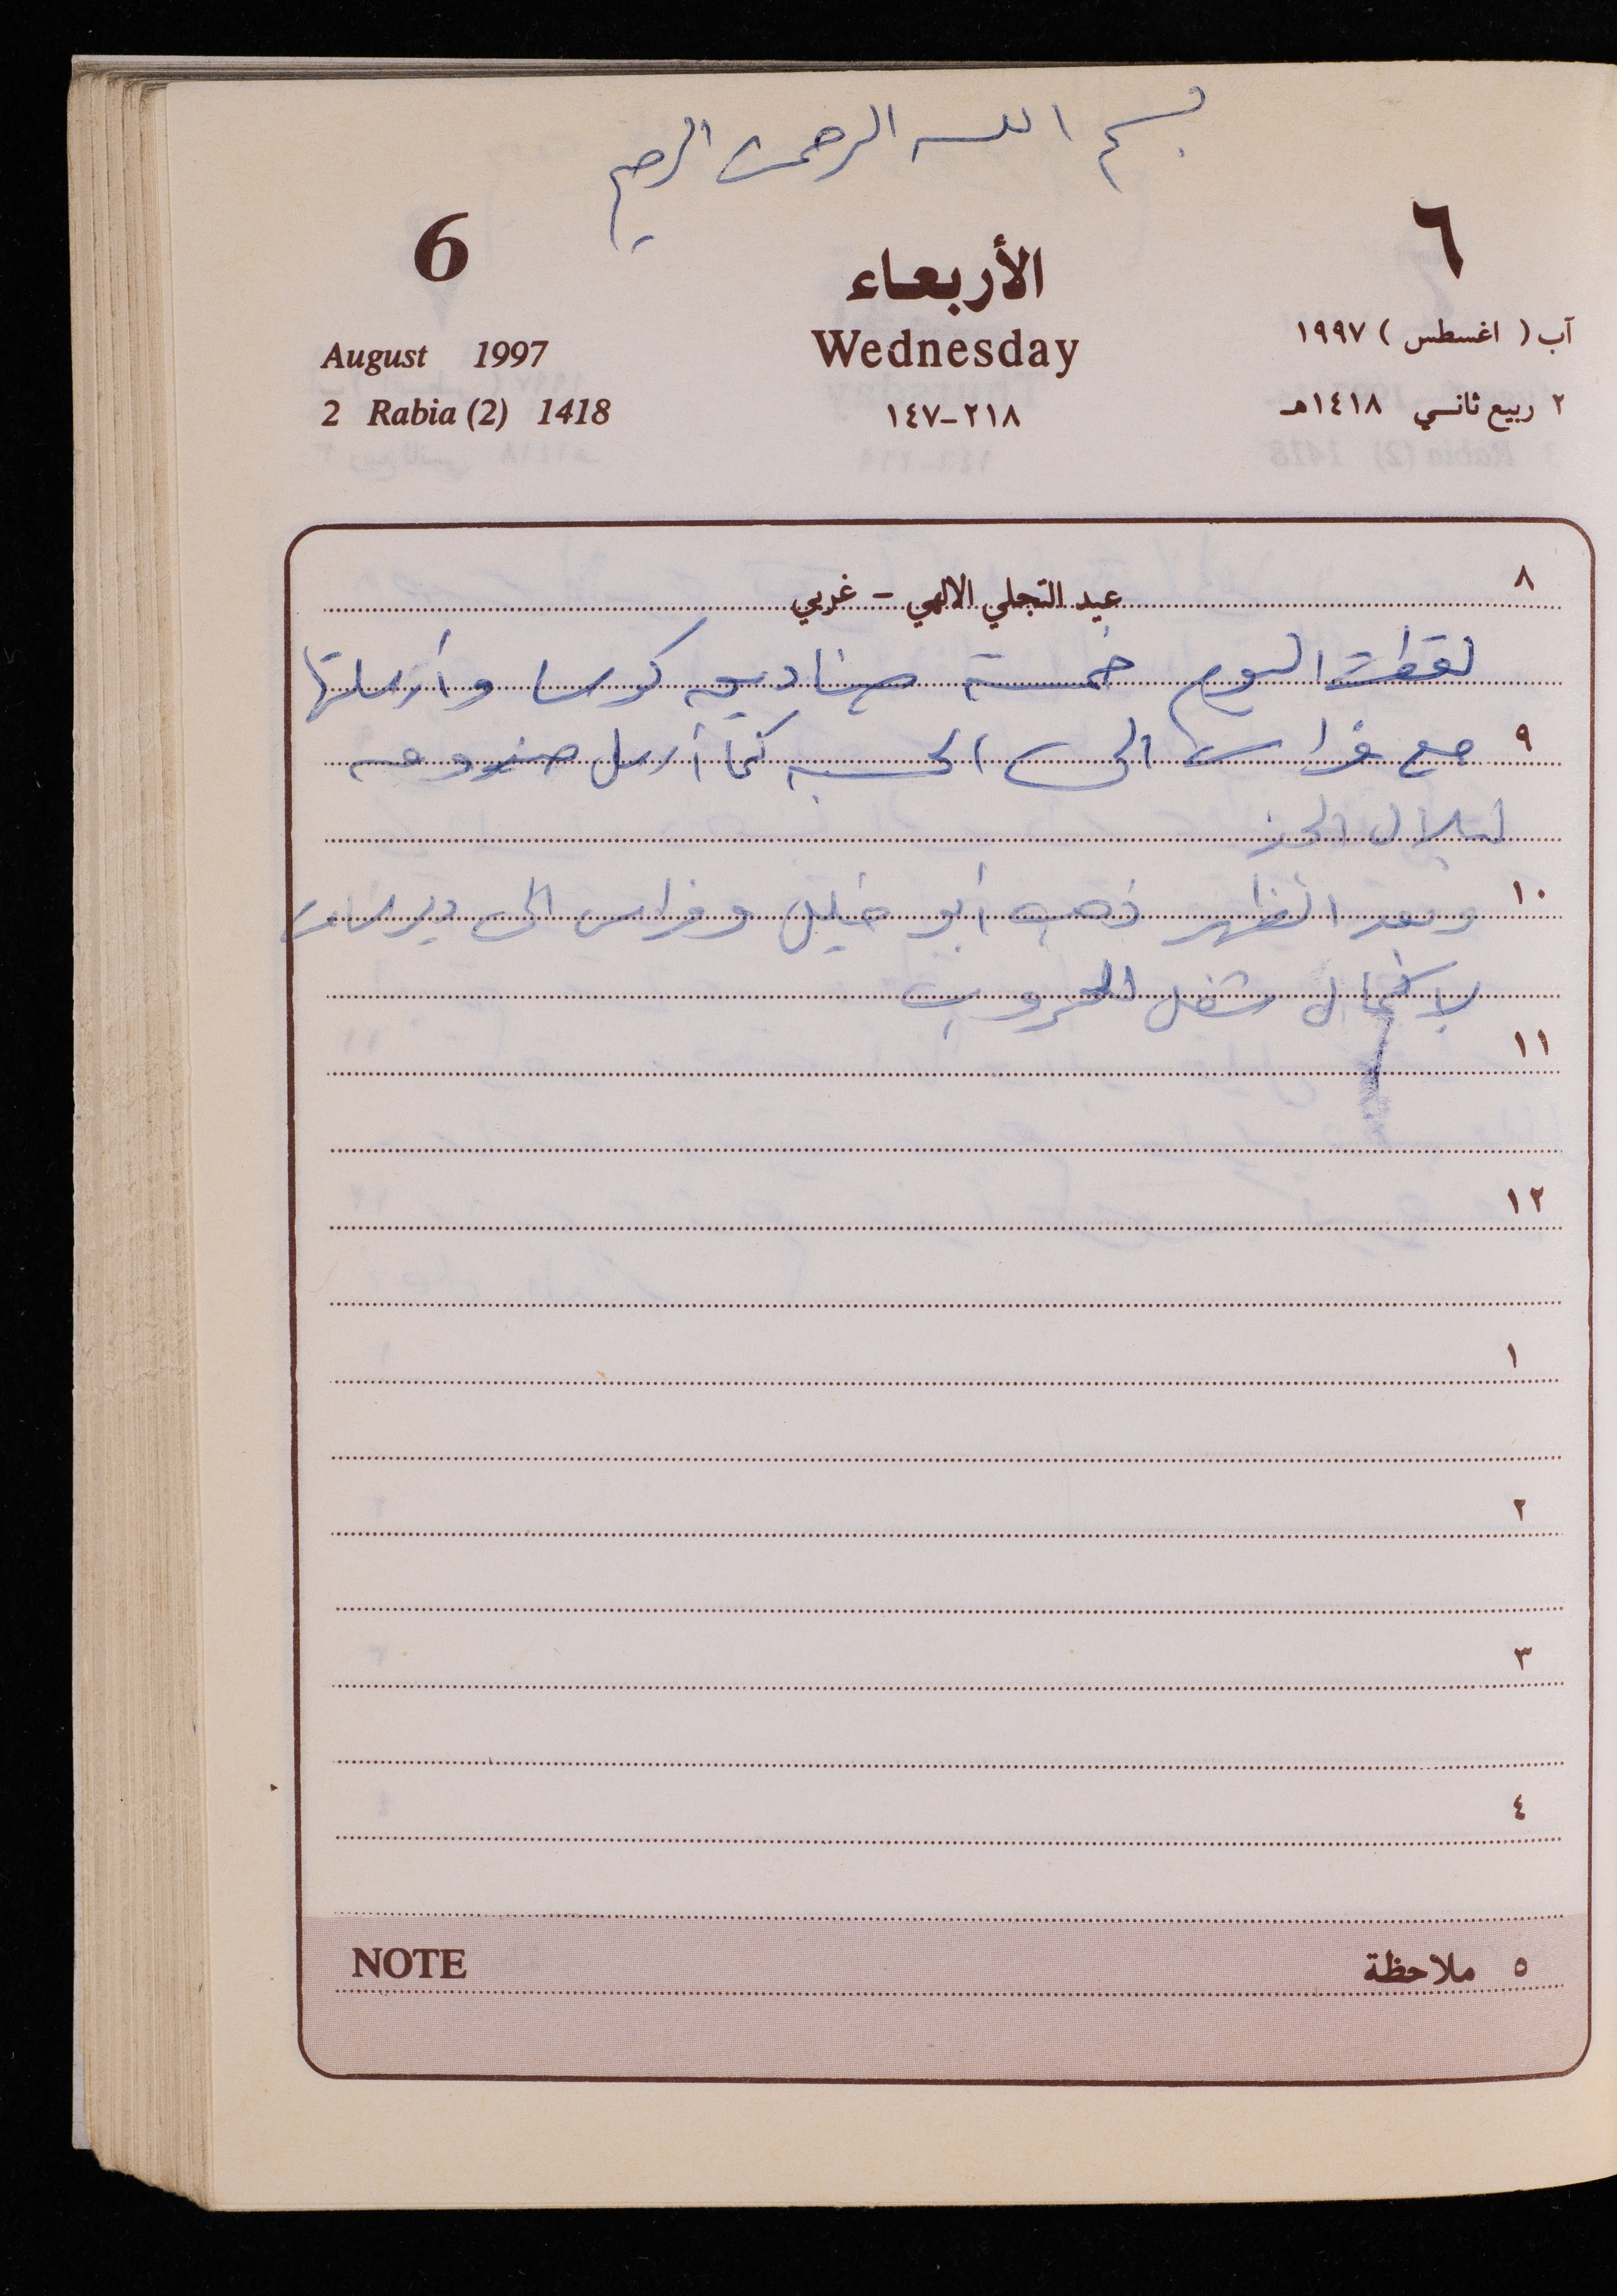 بسم الله الرحمن الرحيم
6
الأربعاء
٦
August 1997
Wednesday
آب ( اغسطس ) ١٩٩٧
2 Rabia (2) 1418
١٤٧-٢١٨
٢ ربيع ثاني ١٤١٨هـ
٨
عيد التجلي الالهي - غربي
لقطت اليوم خمسة صناديق كوسا وأرسلتها
٩ مع فراس الى الحسبه كما أرسل صندوقه
لبلال
١٠ وبعد الظهر ذهب أبو خليل وفراس الى دير
لإكمال شغل الخروب
١١
١٢
١
٢
٣
٤
NOTE
٥ ملاحظة